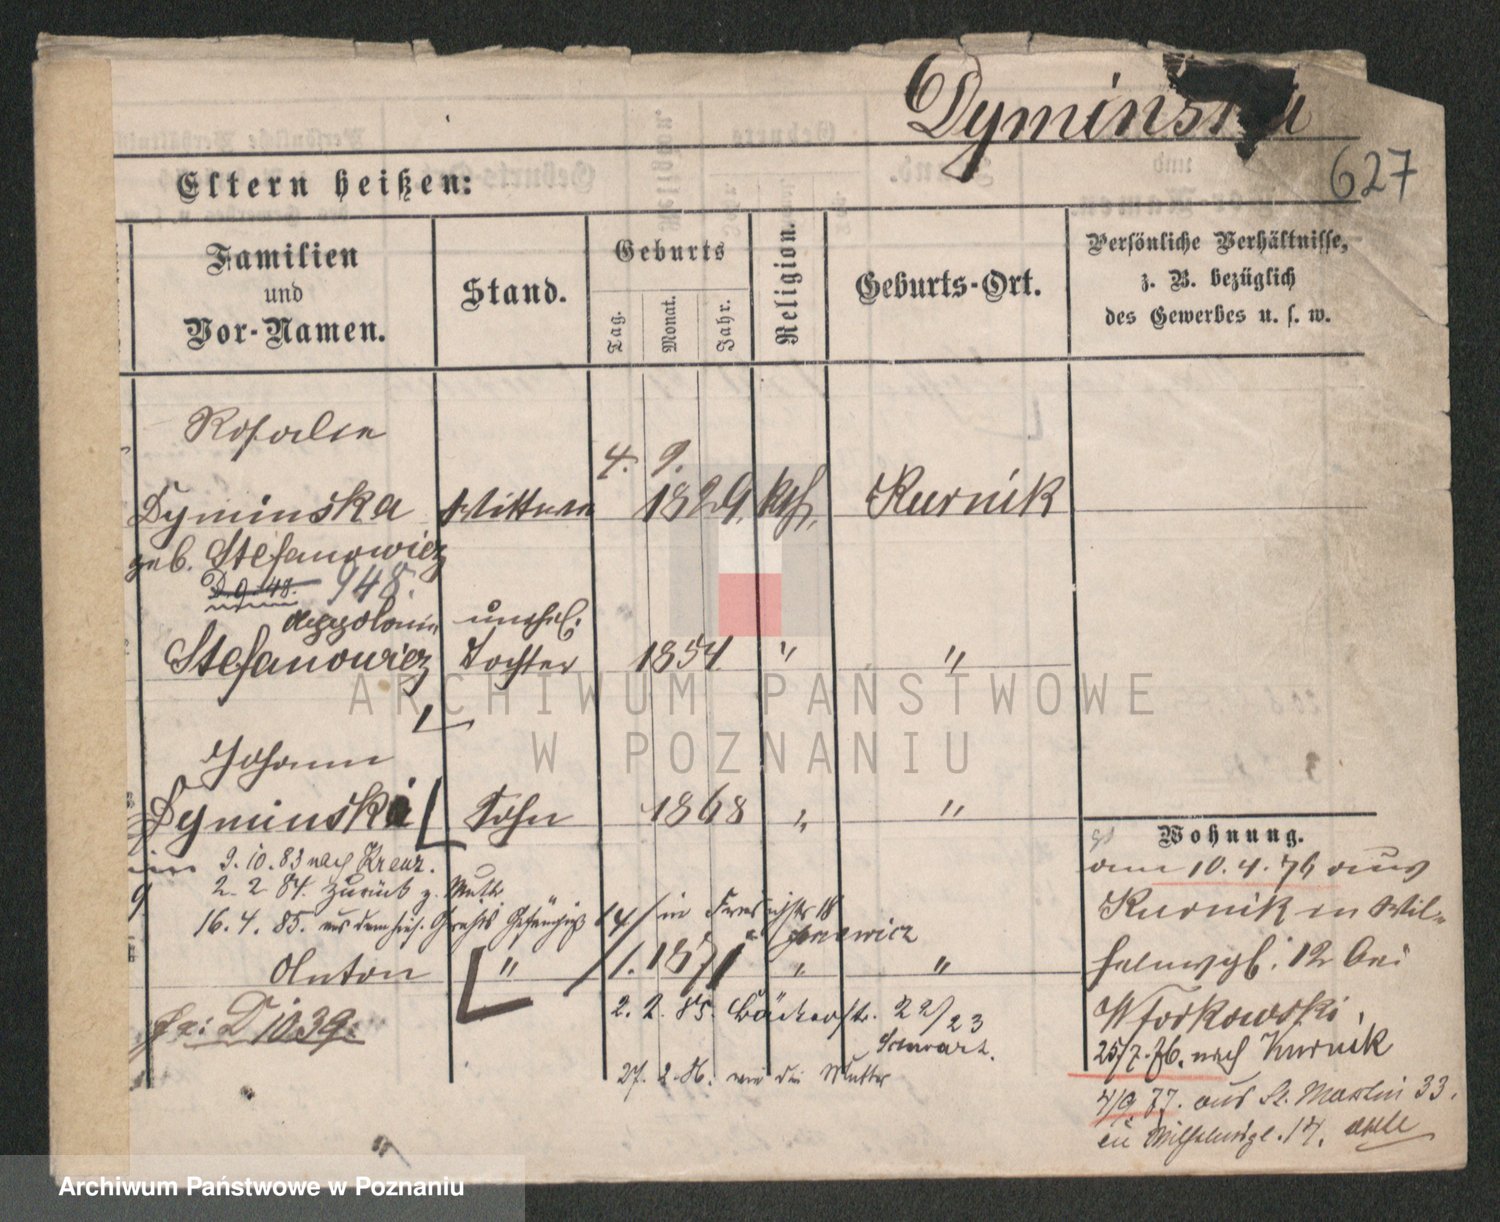 Dyminska
627
Eltern heißen:
Familien
und
Vor-Namen.
Stand.
Geburts
Tag.
Monat.
Jahr.
Religion.
Geburts-Ort.
Persönliche Verhältnisse,
z. B. bezüglich
des Gewerbes u. s. w.
Rosalie
4. 9.
Dyminska Wittwe 1829. kth. Kurnik
geb. Stefanowicz
D.9.48. 948.
Appolonia unehel.
Stefanowicz Tochter 1854 " "
Johann
Dyminski Sohn 1868 " "
9.10.83 nach Kreuz.
2. 2 84. zurück z. Mutt.
16.4.85. aus dem hies. Grchts Gefängniß
Anton " 1. 1871 " "
D 1039.
2. 2. 85. Bäckerstr. 22/23
27. 2. 86. die Mutter
Wohnung.
am 10.4.76 aus
Kurnik in Wil-
helmspl. 12 bei
Wtorkowski,
25/7.76. nach Kurnik
4/9 77. aus St. Martin 33.
in Wilhelmspl. 17.
ARCHIWUM PAŃSTWOWE
W POZNANIU
Archiwum Państwowe w Poznaniu